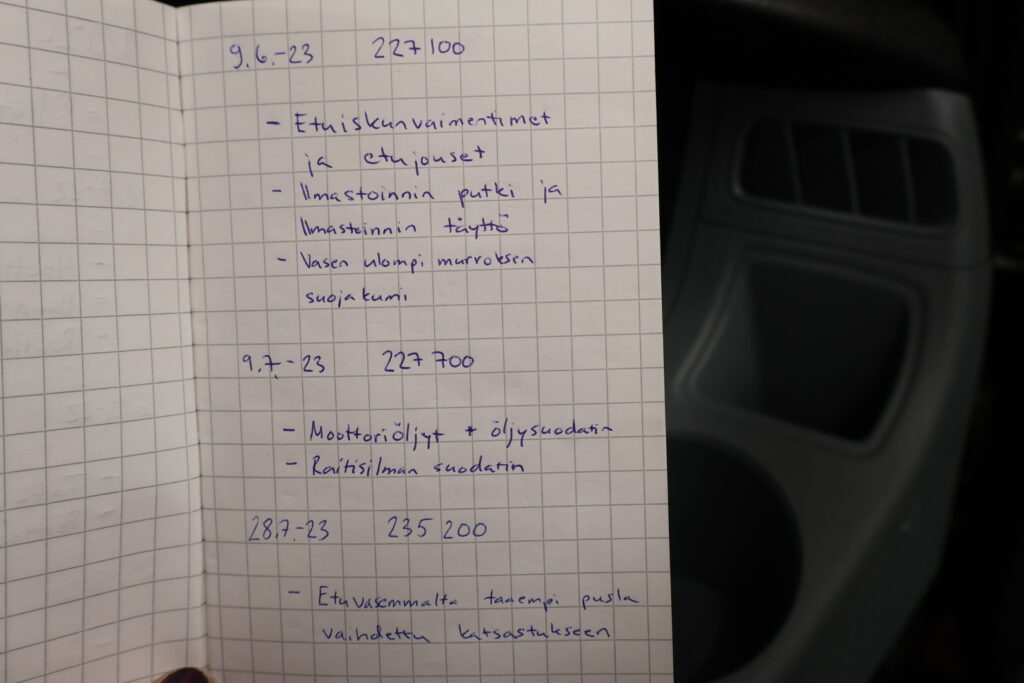 9.6.-23 227100
- Etuiskunvaimentimet
ja etujouset
- Ilmastoinnin putki ja
Ilmastoinnin täyttö
- Vasen ulompi murroksen
suojakumi
9.7.-23 227 700
- Moottoriöljyt + öljysuodatin
- Raitisilman suodatin
28.7.-23 235 200
- Etuvasemmalta taaempi pusla
vaihdettu katsastukseen